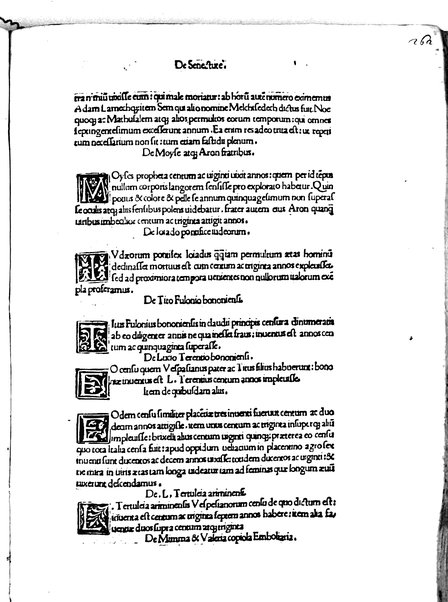 262
De Senectute.
era nimiũ uixisse eum: qui male moriatur: ab horũ autẽ nomero eximemus
Adam Lamechqȝ item Sem qui alio nomine Melchisedech dictus fuit. Noe
quoqȝ ac Mathusalem atqȝ alios permulkos eorum temporum: qui omnes
septingentesimum excesserunt annum. Ea enim res adeo trita est: ut repeti
tum necessarium non sit: tum etiam fastidii plenum.
De Moyse atqȝ Aron fratribus.
MOyses propheta centum ac uiginti uixit annos: quem per id tẽpus
nullam corporis langorem sensisse pro explorato habetur. Quin
potius & colore & pelle se annum quinquagesimum non superas
se oculis atqȝ aliis sensibus polens uidebatur. frater autem eius Aron quanqȝ
uiribus imbecilior centum ac triginta attigit annos.
De Ioiada pontifice iudeorum.
IVdæorum pontifex Ioiadas qȝȝiam permultum ætas hominũ
declinasset mortuus est cum centum ac triginta annos expleuisset.
sed ad proximiora tempora uenientes non nullorum ualorem exẽ
pla proferamus.
De Tito Fulonio bononiensi.
TItus Fulonius bononiensis in claudii principis censura dinumeratis
ab eo diligenter annis ne qua inesset fraus: inuentus est annos cen
tum ac quinquaginta superasse.
De Lucio Terentio bononiensi.
EO censu quem Vespasianus pater ac Titus filius habuerunt: bono
niæ inuentus est L. Terentius centum annos impleuisse.
Item de quibusdam aliis.
EOdem censu similiter placentiæ tres inuenti fuerunt centum ac duo
decim annos attigisse. item unus centum ac triginta insuperqȝ alii
impleuisse: brixelli alius centum uiginti quinqȝ: præterea eo censu
quo tota Italia censa fuit: apud oppidum ueliacium in placentino agro sex
inuenti sunt ducentos ac decem annos uixisse totidem ducentos ac uiginti: &
ne mira in uiris ætas tam longa uideatur iam ad feminas quæ longum æuũ
uixerunt descendamus.
De. L. Tertuleia ariminensi.
L. Tertuleia ariminensis Vespesianorum censu de quo dictum est:
inuenta est centum ac triginta septem annos habere: item alia fa
uentiæ duos supra centum atqȝ triginta
De Mimma & Valeria copiola Emboliaria.